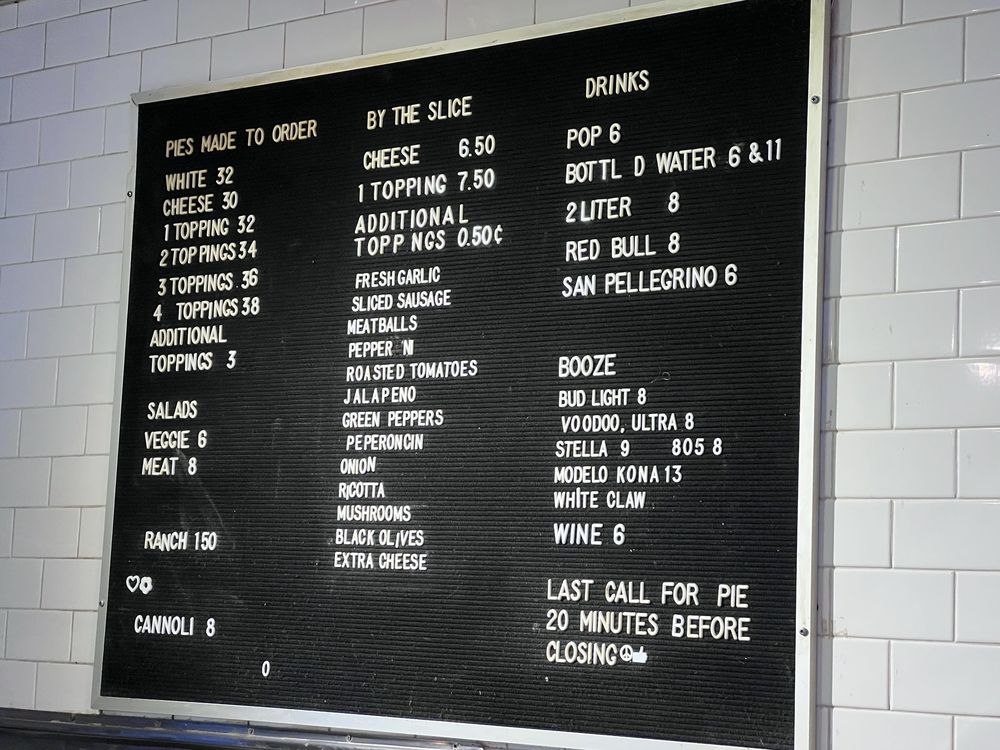 PIES MADE TO ORDER
WHITE 32
CHEESE 30
1 TOPPING 32
2 TOPPINGS 34
3 TOPPINGS 36
4 TOPPINGS 38
ADDITIONAL
TOPPINGS 3
SALADS
VEGGIE 6
MEAT 8
RANCH 150
CANNOLI 8
0
BY THE SLICE
CHEESE 6.50
1 TOPPING 7.50
ADDITIONAL
TOPP NGS 0.50¢
FRESH GARLIC
SLICED SAUSAGE
MEATBALLS
PEPPER NI
ROASTED TOMATOES
JALAPENO
GREEN PEPPERS
PEPERONCIN
ONION
RICOTTA
MUSHROOMS
BLACK OLIVES
EXTRA CHEESE
DRINKS
POP 6
BOTTL D WATER 6 & 11
2 LITER 8
RED BULL 8
SAN PELLEGRINO 6
BOOZE
BUD LIGHT 8
VOODOO, ULTRA 8
STELLA 9 805 8
MODELO KONA 13
WHITE CLAW
WINE 6
LAST CALL FOR PIE
20 MINUTES BEFORE
CLOSING